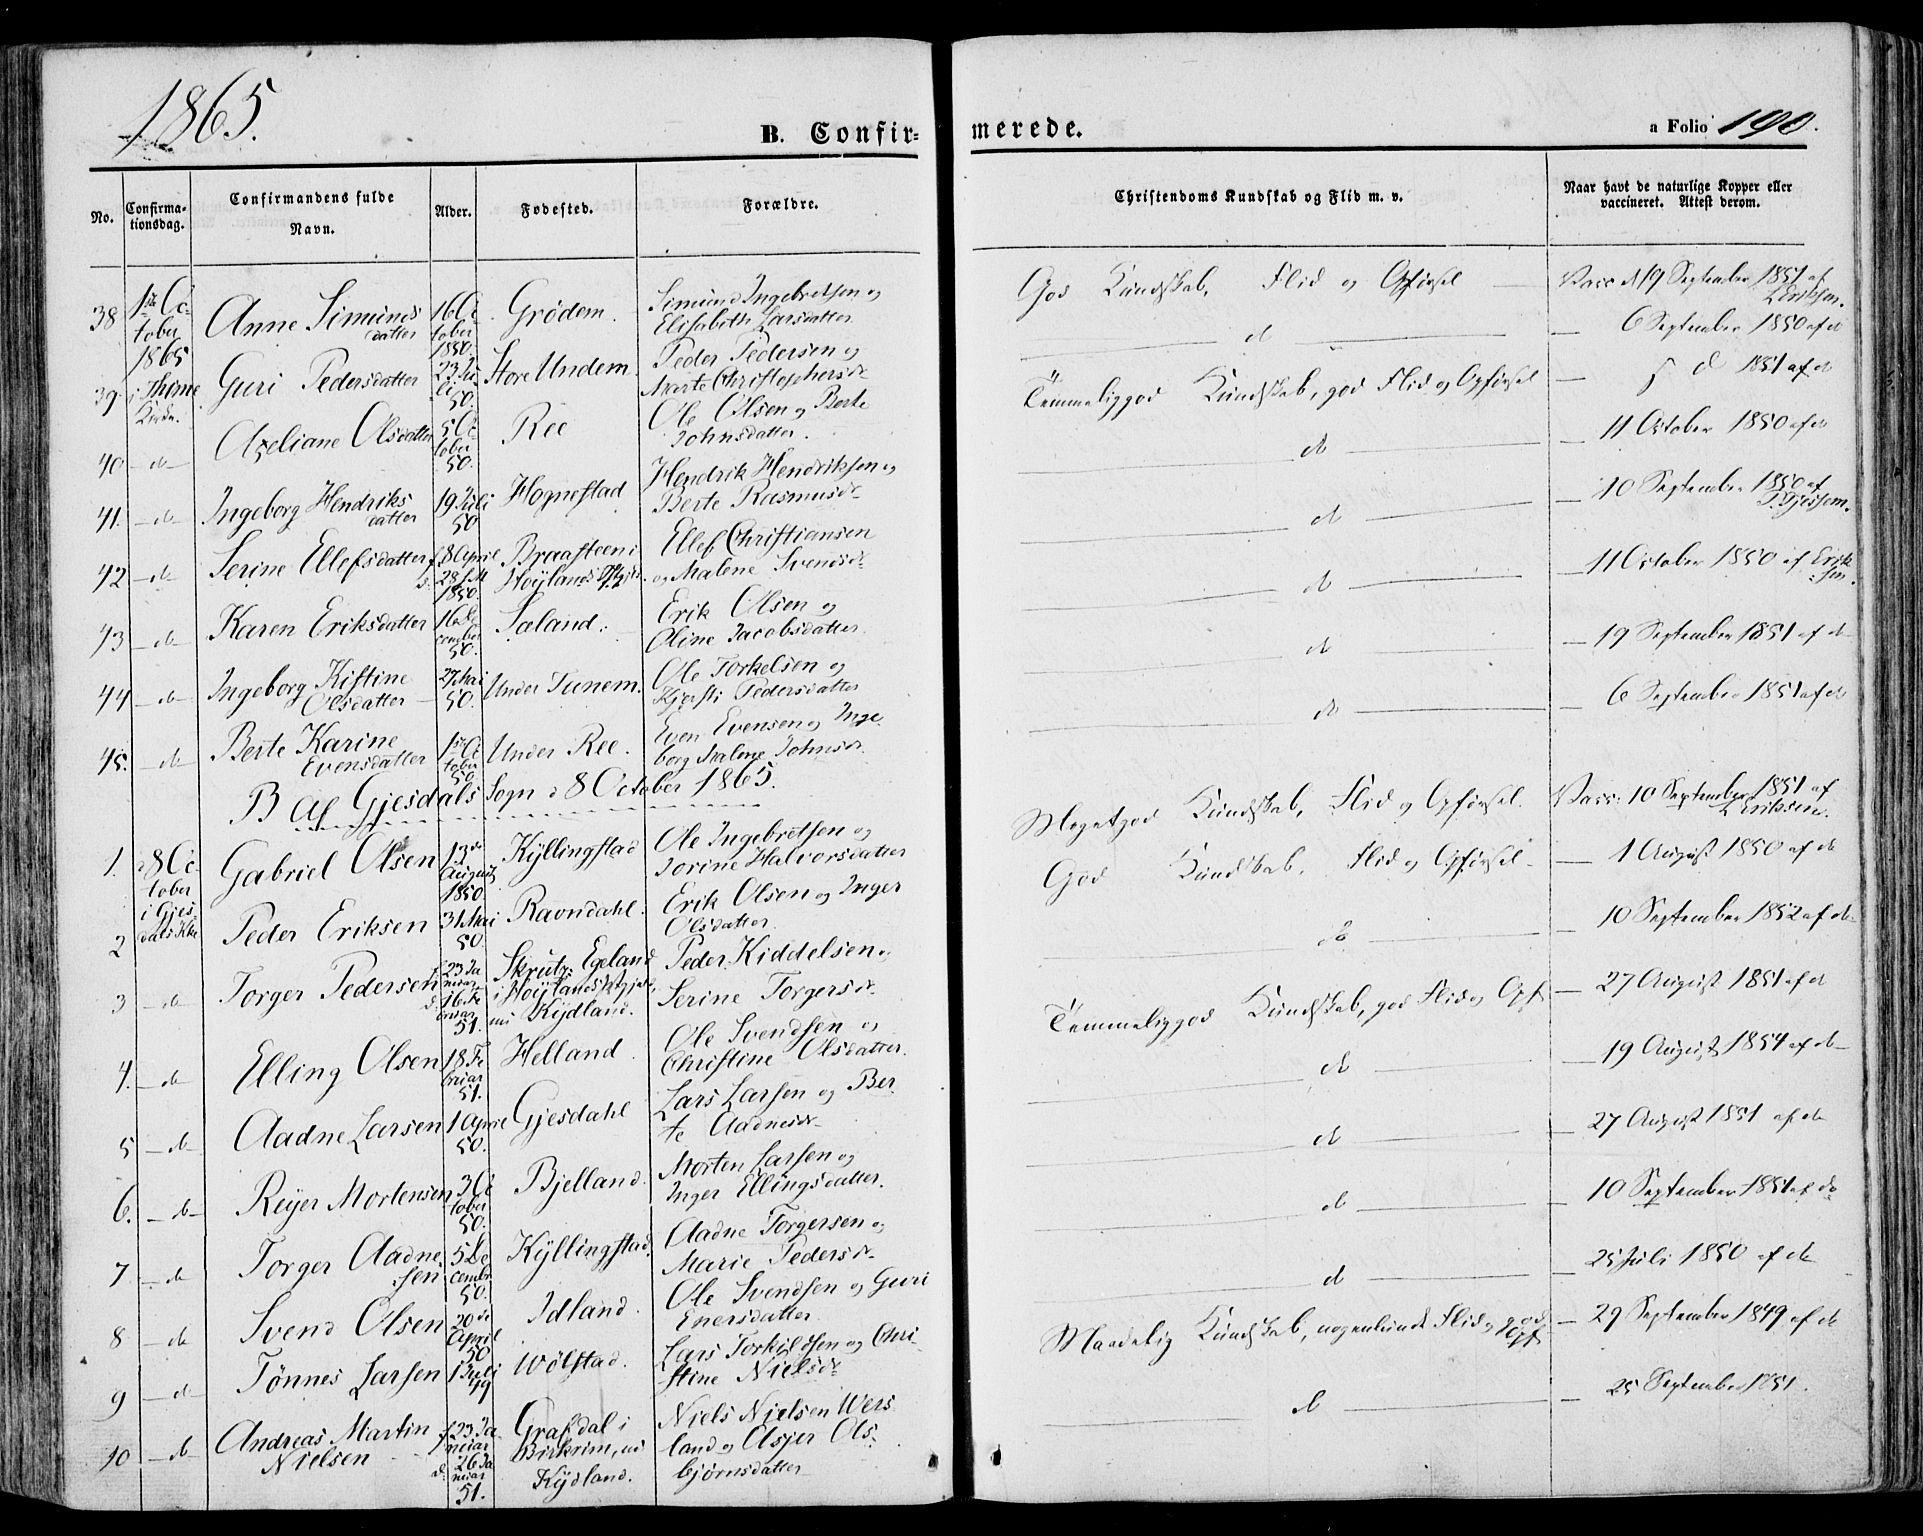 1865.
B. Confir=
merede.
a Folio 190.
No.
Confirma-
tionsdag.
Confirmandens fulde
Navn.
Alder.
Fødested.
Forældre.
Christendoms Kundskab og Flid m. v.
Naar havt de naturlige Kopper eller
vaccineret. Attest derom.
38 1ste Oc-
tober
1865
Anne Simons
datter
16 Oc
tober
1850
Grødem.
Simund Ingebretsen og
Elisabeth Larsdatter
God Kundskab, Flid og Opførsel
Vacc. d 19 September 1851 af
Eriksen.
39 i Thime
Kirke.
Guri Pedersdatter
23 Ju
li
50.
Store Undem.
Peder Pedersen og
Marte Christophersdr
d
6 September 1850 af d
40 — d —
Azeliane Olsdatter
5 Oc
tober
50.
Ree
Ole Olsen og Berte
Johnsdatter.
Temmeliggod Kundskab, god Flid og Opførsel
d 1851 af d
41. — d —
Ingeborg Hendriks
datter
19 Juli
50
Hognestad
Hendrik Hendriksen og
Berte Rasmusdr
d
11 October 1850 af d
42 — d —
Serine Ellefsdatter
f. 8 April
d. 28 s. M
1850.
Braasteen i
Høylands
Ellef Christiansen
og Malene Svendsdr
d
10 September 1850 af
43 — d —
Karen Eriksdatter
16 De
cember
50.
Sæland.
Erik Olsen og
Oline Jacobsdatter
d
11 October 1850 af Erik
sen.
44 — d —
Ingeborg Kistine
Olsdatter
27 Mai
50.
Under Tunem.
Ole Torkelsen og
Kjersti Pedersdatter
d
19 September 1851 af d
45. — d —
Berte Karine
Evensdatter
1ste Oc
tober
50
Under Ree.
Even Evensen og Inge
borg Malene Johnsdr.
d
6 September 1851 af d
B af Gjesdals Sogn d 8 October 1865.
1. d 8 Oc
tober
i Gjes-
dals Kke
Gabriel Olsen
13de
August
1850
Kyllingstad
Ole Ingebretsen og
Jorine Halvorsdatter
Megetgod Kundskab, Flid og Opførsel.
Vacc: 10 September 1851 af
Eriksen.
2
Peder Eriksen
31 Mai
50
Ravndahl.
Erik Olsen og Inger
Olsdatter
God Kundskab, Flid og Opførsel
1 August 1850 af d
3 — d
Torger Pedersen
f. 23 Ja
nuar
d. 16 Fe
bruar
51.
Skrutz: Egeland
i Høylands
nu Kydland.
Peder Kiddelsen og
Serine Torgersdr
d
10 September 1852 af d
4. — d
Elling Olsen
18 Fe
bruar
51.
Helland.
Ole Svendsen og
Christine Olsdatter.
Temmeliggod Kundskab, god Flid og Opf
27 August 1851 af d
5 — d
Aadne Larsen
1 April
50.
Gjesdahl
Lars Larsen og Ber
te Aadnesdr
d
19 August 1854 af d
6. — d
Reyer Mortensen
3 Oc
tober
50.
Bjelland.
Morten Larsen og
Inger Ellingsdatter.
d
27 August 1851 af d
7 — d
Torger Aadne
sen
5 De
cembr
50.
Kyllingstad.
Aadne Torgersen og
Marie Pedersdr
d
10 September 1851 af d
8 — d
Svend Olsen
20de
April
50
Idland.
Ole Svendsen og Guri
Enersdatter
d
25 Juli 1850 af d
9 — d
Tønnes Larsen
1 Juli
49
Wølstad.
Lars Torkildsen og Chri-
stine Nielsdr
Maadelig Kundskab, nogenlunde Flid og god
Opf
29 September 1849 af d
10 — d
Andreas Martin
Nielsen
f 23 Ja
nuar
d. 26 Ja
nuar
51.
Grafdal i
Birkrim, nu
Kydland.
Niels Nielsen Wers
land og Asjer Ols
bjørnsdatter
d
25 September 1851.